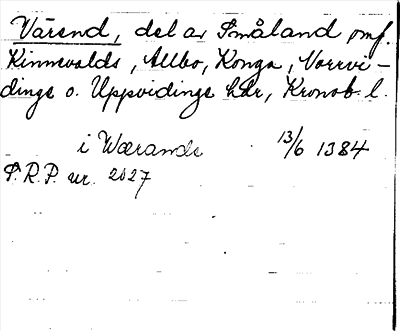 Värend, del av Småland omf.
Kinnevalds, Allbo, Konga, Norrvi-
dinge o. Uppvidinge hdr, Kronob. l.
i Wærande 13/6 1384
S.R.P. nr. 2027